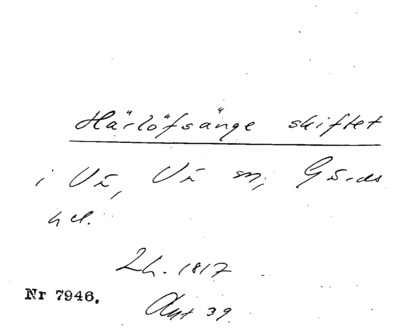 Härlöfsänge skiftet
i Vä, Vä sn, Gärds
hd.
Lh. 1817
Nr 7946.
Akt 39